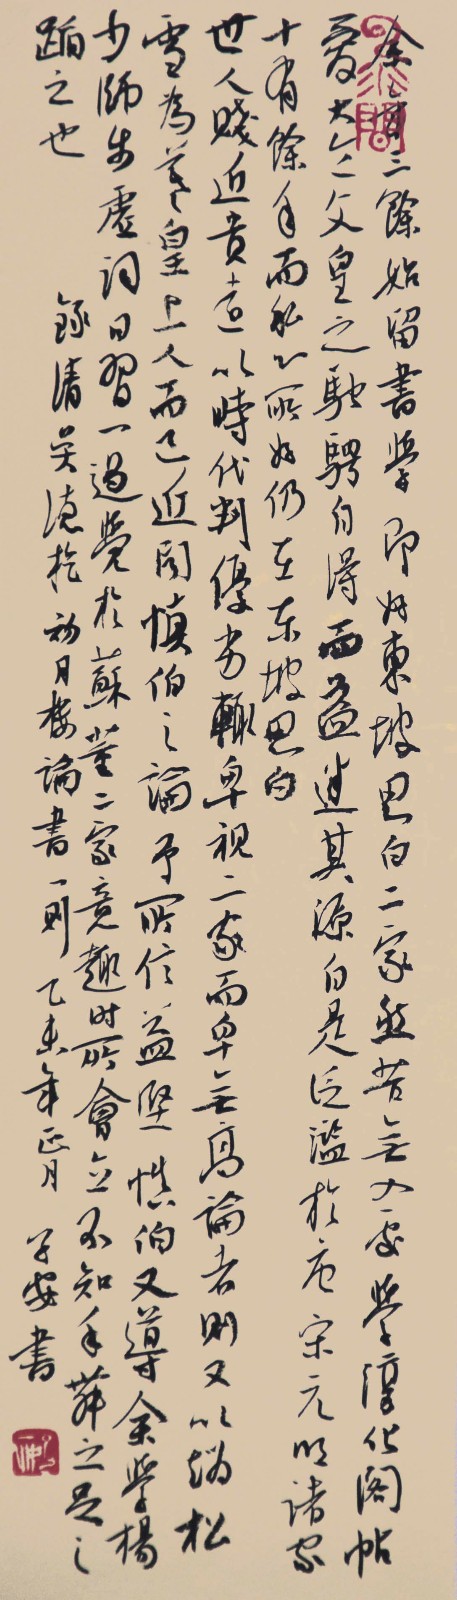 余年二餘始留書學即好東坡思白二家然苦無入處學淳化閣帖
愛大令文皇之馳騁自得而益迷其源自是泛濫於唐宋元明諸家
十有餘年而私心所好仍在東坡思白
世人賤近貴遠以時代判優劣輒卑視二家而卑無高論者則又以趙松
雪為羲皇上人而已近聞慎伯之論予所信益堅慎伯又導余學楊
少師步虛詞日習一過覺於蘇董二家意趣時所會立不知手舞之足之
蹈之也
錄清吳德旋初月樓論書一則乙未年正月 子安書